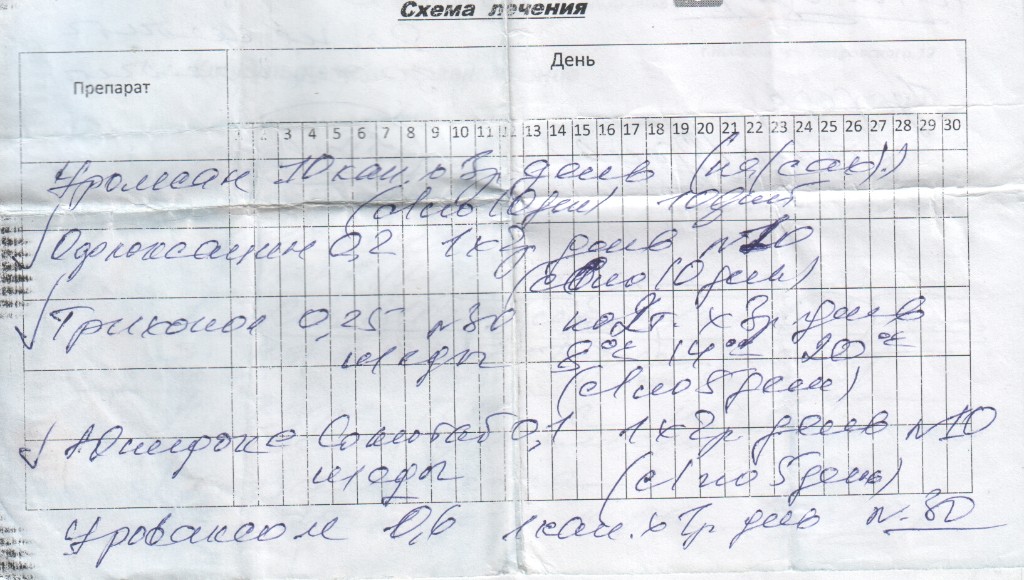 Схема лечения
День
Препарат
3 4 5 6 7 8 9 10 11 12 13 14 15 16 17 18 19 20 21 22 23 24 25 26 27 28 29 30
Уролесан 10 кап. х 3р день (на/сах.)
(с 1 по 10 день)
Офлоксацин 0,2 1х2р день №10
(с 1 по 10 день)
Трихопол 0,25 №30 по 2т. х 3р день
после еды 8 14 20
(с 1 по 5 день)
Юнидокс Солютаб 0,1 1х2р день №10
после еды (с 1 по 5 день)
Уроваксом 0,6 1 кап. х 1р день №30